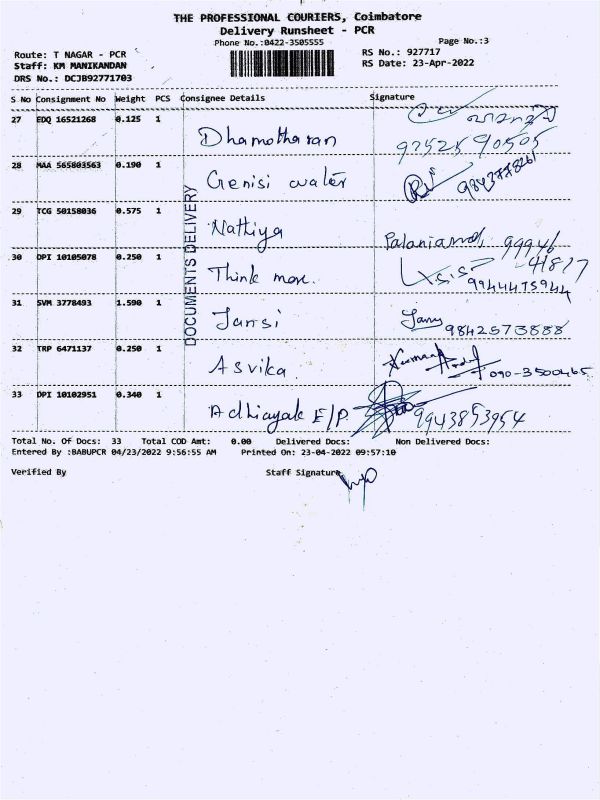 THE PROFESSIONAL COURIERS, Coimbatore
Delivery Runsheet - PCR
Phone No.:0422-3505555
Page No.:3
Route: T NAGAR - PCR
RS No.: 927717
Staff: KM MANIKANDAN
RS Date: 23-Apr-2022
DRS No.: DCJB92771703
S No Consignment No Weight PCS Consignee Details Signature
27 EDQ 16521268 0.125 1 Dhamotharan
28 MAA 565803563 0.190 1 Genisi water 9843778261
29 TCG 50158036 0.575 1 Nattiya 99946
30 DPI 10105078 0.250 1 Think more. 41817
9944475944
31 SVM 3778493 1.590 1 Jansi Jany 9842573888
32 TRP 6471137 0.250 1 Asvika 090-3500465
33 DPI 10102951 0.340 1 Adhiayak E/P. 9943853954
DOCUMENTS DELIVERY
Total No. Of Docs: 33 Total COD Amt: 0.00 Delivered Docs: Non Delivered Docs:
Entered By :BABUPCR 04/23/2022 9:56:55 AM Printed On: 23-04-2022 09:57:10
Verified By Staff Signature